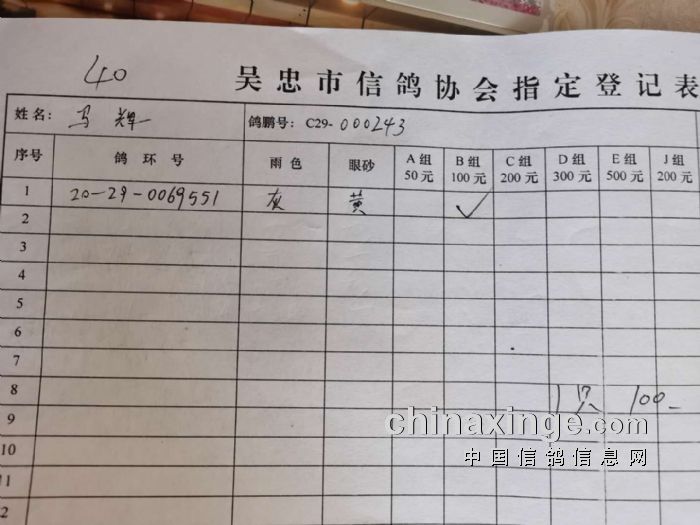 40
吴忠市信鸽协会指定登记表
姓名： 马辉 鸽鹏号：C29-000243
序号 鸽环号 雨色 眼砂 A组 50元 B组 100元 C组 200元 D组 300元 E组 500元 J组 200元
1 20-29-0069551 灰 黄 ✓
2
3
4
5
6
7
8 1只 100-
9
10
11
2
chinaxinge.com
中国信鸽信息网